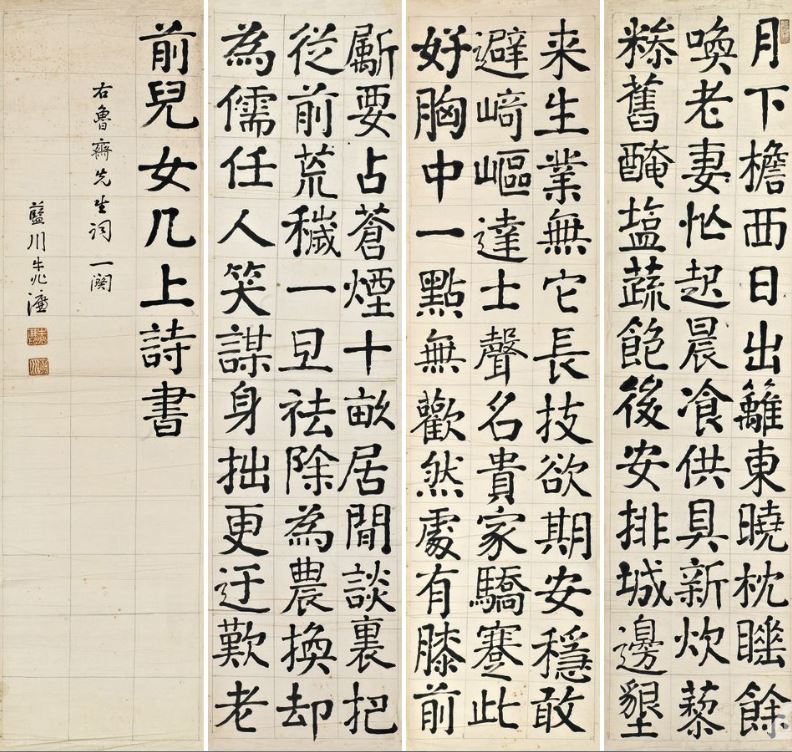 月下檐西日出籬東曉枕睡餘
喚老妻忙起晨飡供具新炊藜
糝舊醃塩蔬飽後安排城邊墾
来生業無它長技欲期安穩敢
避崎嶇達士聲名貴家驕蹇此
好胸中一點無歡然處有膝前
斸要占蒼煙十畝居間談裏把
從前荒穢一旦祛除為農換却
為儒任人笑謀身拙更迂歎老
前兒女几上詩書
右魯齋先生詞一闋
藍川牛兆濂